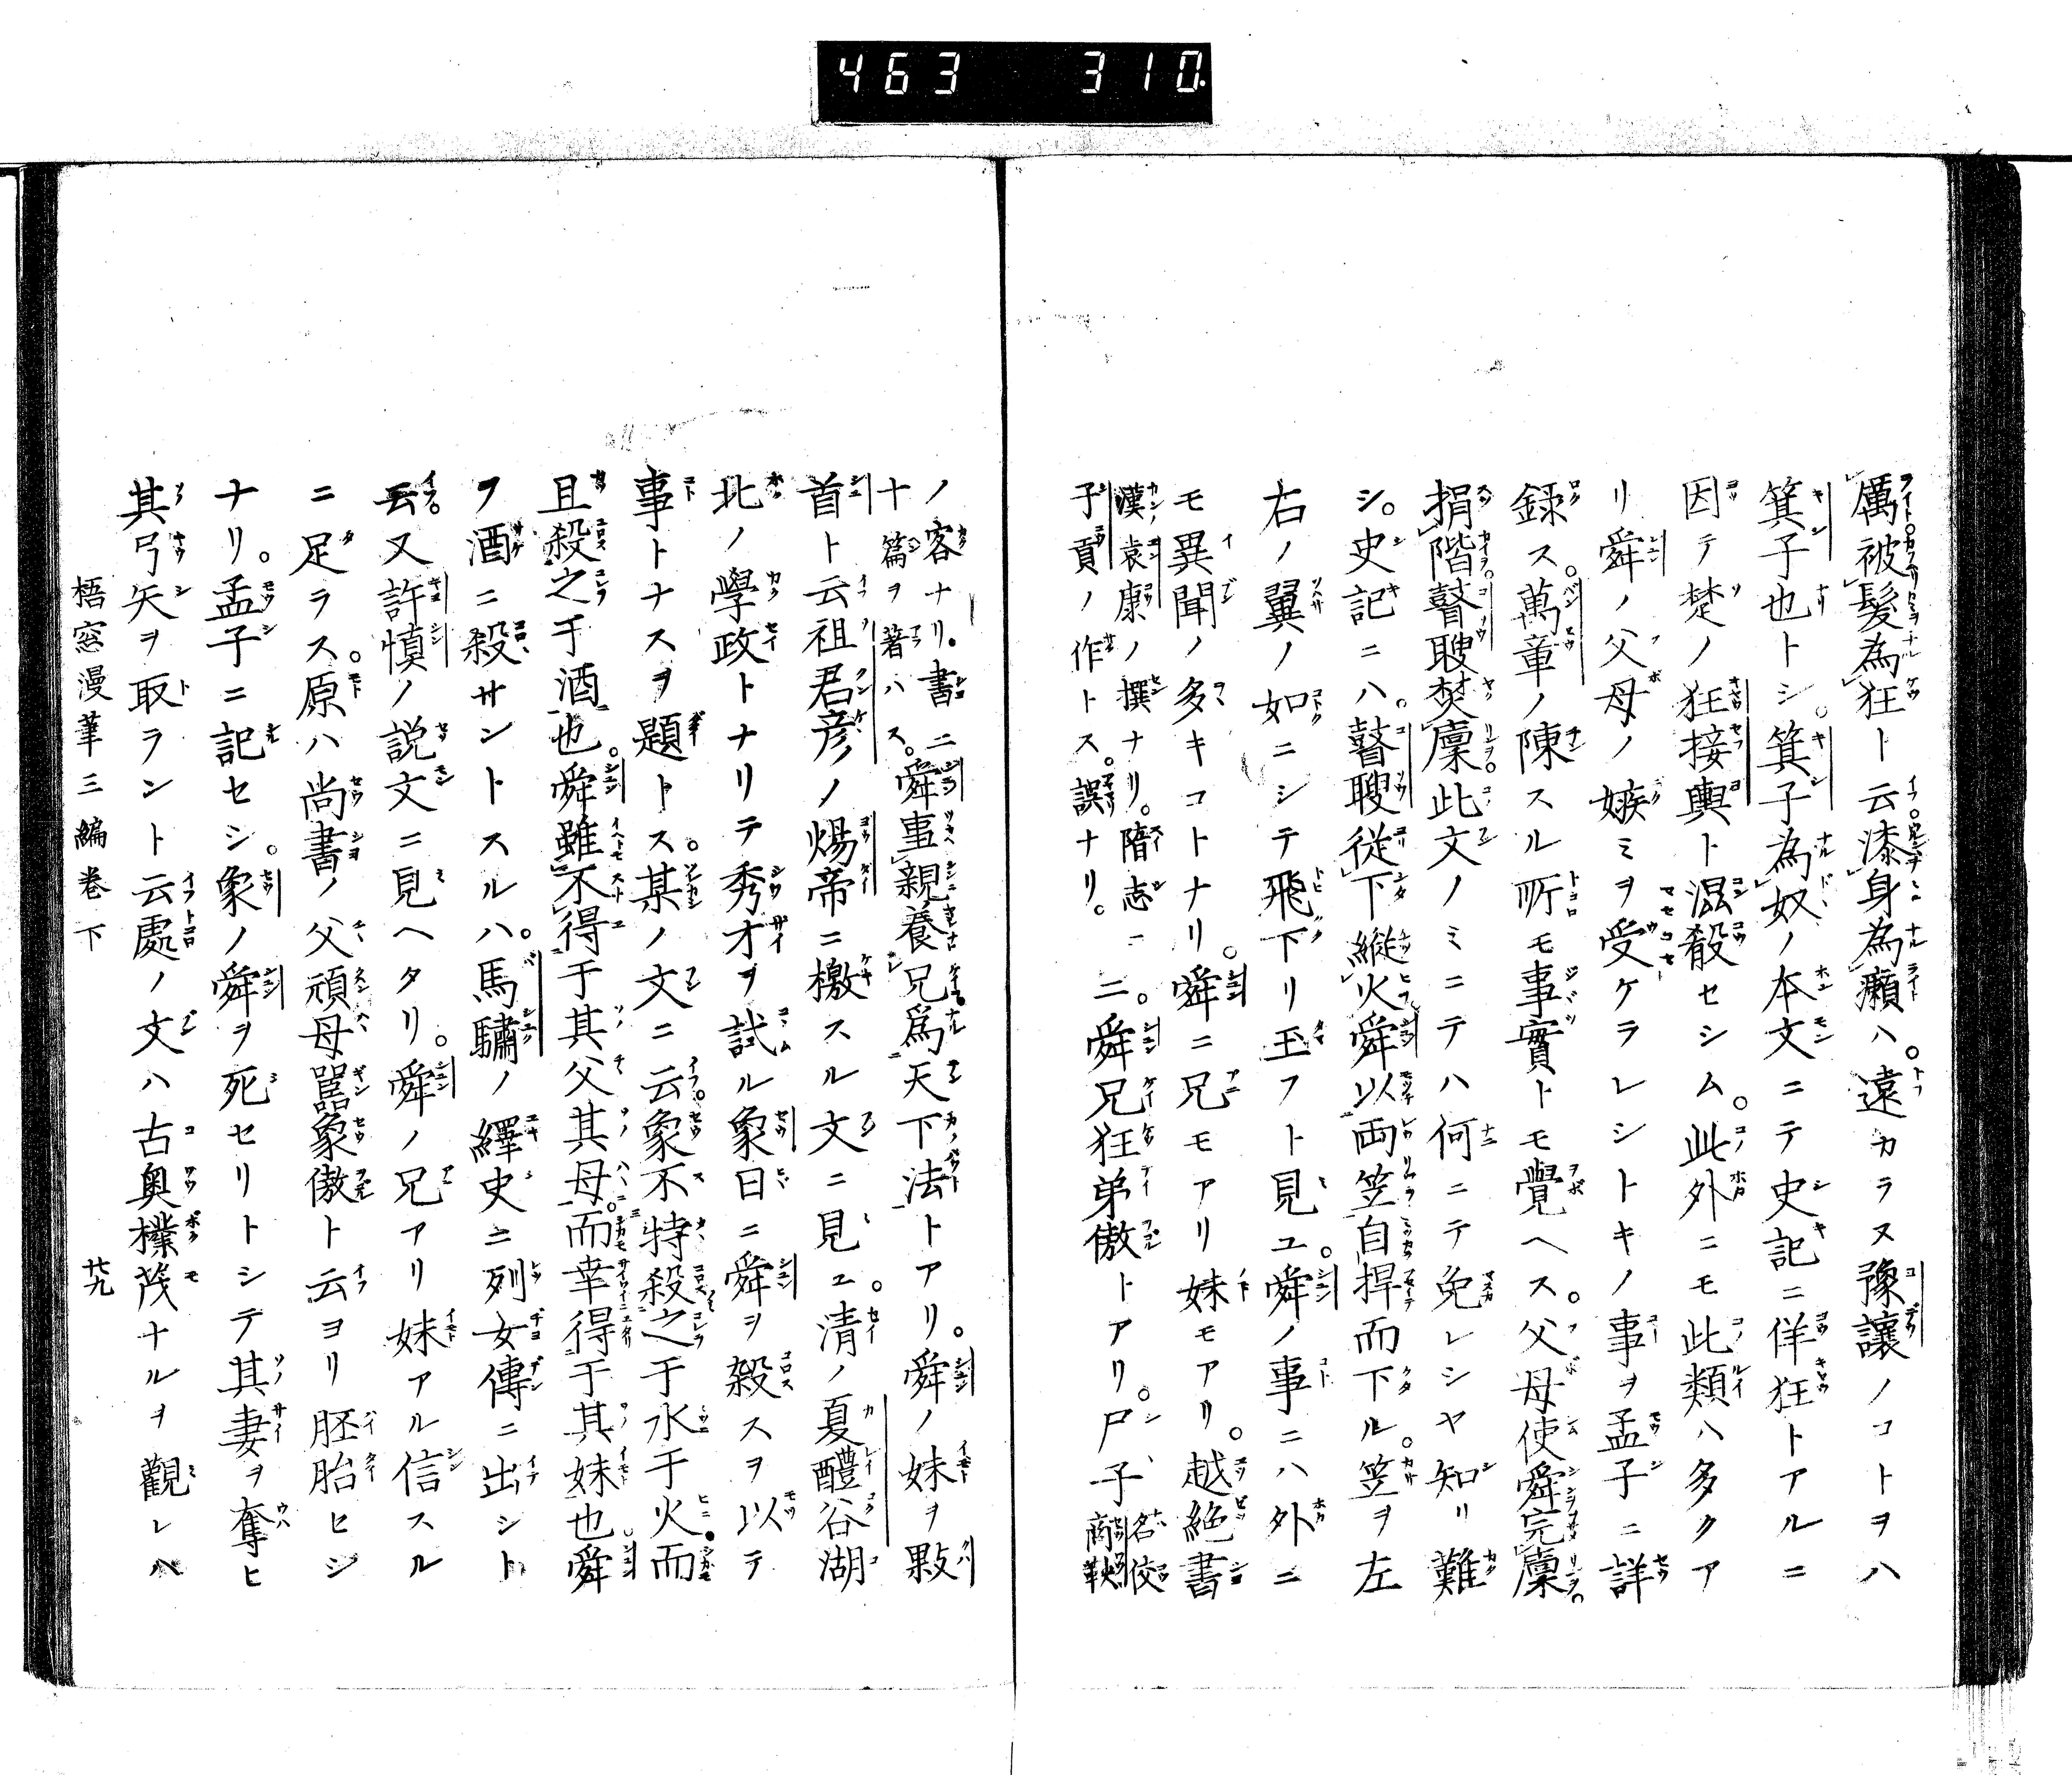 463 310
厲被髮為狂ト云漆身為癩ハ遠カラヌ豫讓ノコトヲハ
箕子也トシ箕子為奴ノ本文ニテ史記ニ佯狂トアルニ
因テ楚ノ狂接輿ト混殽セシム此外ニモ此類ハ多クア
リ舜ノ父母ノ嫉ミヲ受ケラレシトキノ事ヲ孟子ニ詳
録ス萬章ノ陳スル所モ事實トモ覺ヘス父母使舜完廩
捐階瞽瞍焚廩此文ノミニテハ何ニテ免レシヤ知リ難
シ史記ニハ瞽瞍從下縱火舜以両笠自捍而下ル笠ヲ左
右ノ翼ノ如ニシテ飛下リ玉フト見ユ舜ノ事ニハ外ニ
モ異聞ノ多キコトナリ舜ニ兄モアリ妹モアリ越絶書
漢袁康ノ撰ナリ隋志ニ
子貢ノ作トス誤ナリ。
二舜兄狂弟傲トアリ尸子
名佼
商鞅
ノ客ナリ書ニ
十篇ヲ著ハス
舜事親養兄爲天下法トアリ舜ノ妹ヲ敤
首ト云祖君彦ノ煬帝ニ檄スル文ニ見ユ清ノ夏醴谷湖
北ノ學政トナリテ秀才ヲ試ル象日ニ舜ヲ殺スヲ以テ
事トナスヲ題トス某ノ文ニ云象不特殺之于水于火而
且殺之于酒也舜雖不得于其父其母而幸得于其妹也舜
ヲ酒ニ殺サントスルハ馬驌ノ繹史ニ列女傳ニ出シト
云又許慎ノ説文ニ見ヘタリ舜ノ兄アリ妹アル信スル
ニ足ラス原ハ尚書ノ父頑母嚚象傲ト云ヨリ胚胎セシ
ナリ孟子ニ記セシ象ノ舜ヲ死セリトシテ其妻ヲ奪ヒ
其弓矢ヲ取ラント云處ノ文ハ古奥樸茂ナルヲ觀レハ
梧窓漫筆三編巻下 廿九